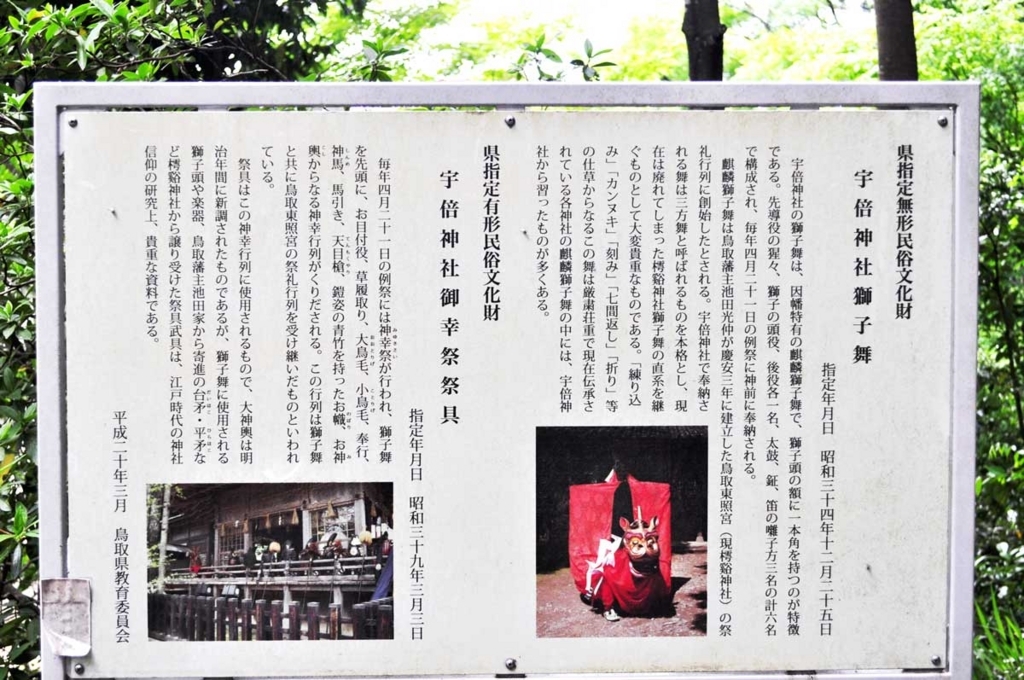 県指定無形民俗文化財
宇倍神社獅子舞
指定年月日　昭和三十四年十二月二十五日
宇倍神社の獅子舞は、因幡特有の麒麟獅子舞で、獅子頭の額に一本角を持つのが特徴
である。先導役の猩々、獅子の頭役、後役各一名、太鼓、鉦、笛の囃子方三名の計六名
で構成され、毎年四月二十一日の例祭に神前に奉納される。
麒麟獅子舞は鳥取藩主池田光仲が慶安三年に建立した鳥取東照宮（現樗谿神社）の祭
礼行列に創始したとされる。宇倍神社で奉納さ
れる舞は三方舞と呼ばれるものを本格とし、現
在は廃れてしまった樗谿神社獅子舞の直系を継
ぐものとして大変貴重なものである。「練り込
み」「カンヌキ」「刻み」「七間返し」「折り」等
の仕草からなるこの舞は厳粛荘重で現在伝承さ
れている各神社の麒麟獅子舞の中には、宇倍神
社から習ったものが多くある。
県指定有形民俗文化財
宇倍神社御幸祭祭具
指定年月日　昭和三十九年三月三日
毎年四月二十一日の例祭には神幸祭が行われ、獅子舞
を先頭に、お目付役、草履取り、大鳥毛、小鳥毛、奉行、
神馬、馬引き、天目槍、鎧姿の青竹を持ったお幟、お神
輿からなる神幸行列がくりだされる。この行列は獅子舞
と共に鳥取東照宮の祭礼行列を受け継いだものといわれ
ている。
祭具はこの神幸行列に使用されるもので、大神輿は明
治年間に新調されたものであるが、獅子舞に使用される
獅子頭や楽器、鳥取藩主池田家から寄進の台矛・平矛な
ど樗谿神社から譲り受けた祭具武具は、江戸時代の神社
信仰の研究上、貴重な資料である。
平成二十年三月　鳥取県教育委員会